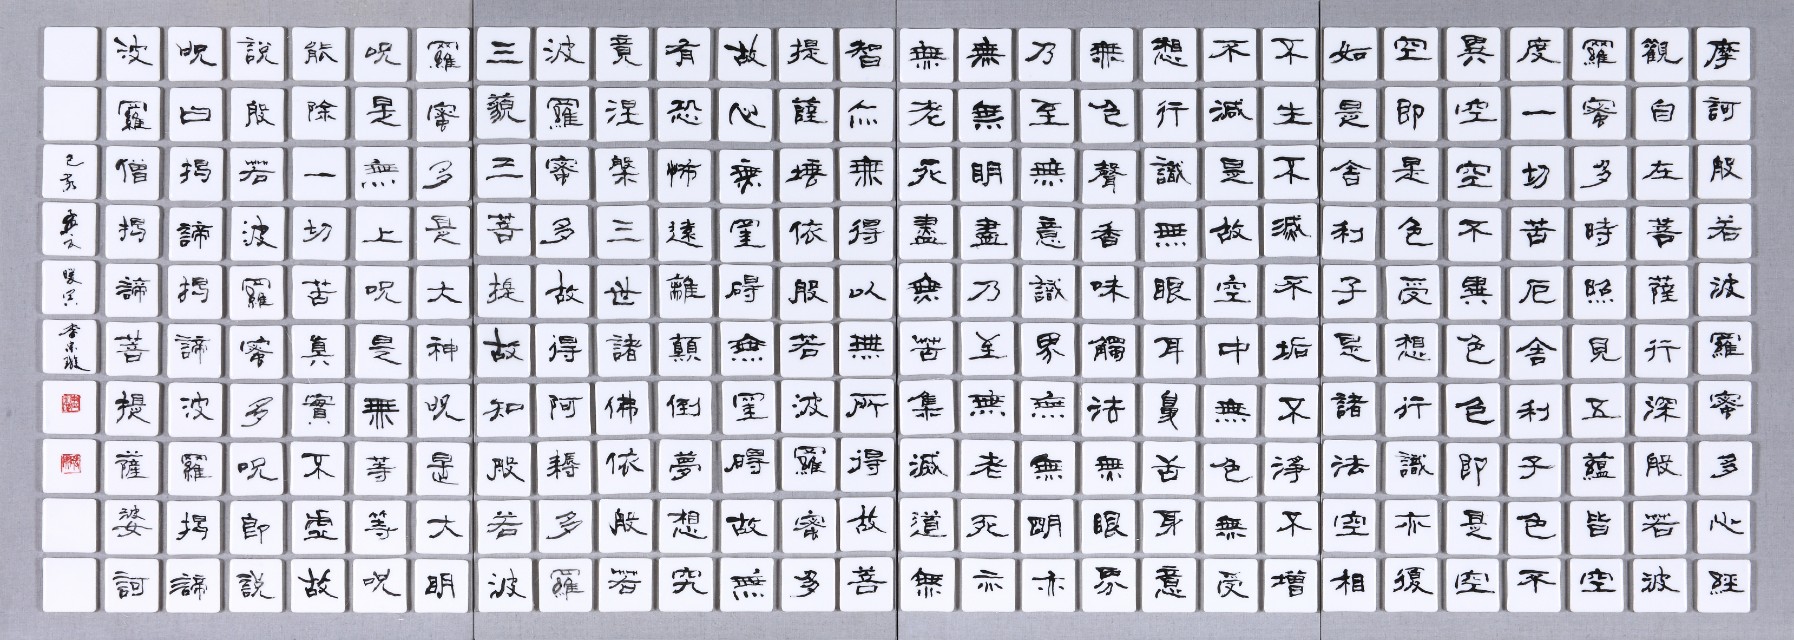 摩訶般若波羅蜜多心經
觀自在菩薩行深般若波
羅蜜多時照見五蘊皆空
度一切苦厄舍利子色不
異空空不異色色即是空
空即是色受想行識亦復
如是舍利子是諸法空相
不生不滅不垢不淨不增
不減是故空中無色無受
想行識無眼耳鼻舌身意
無色聲香味觸法無眼界
乃至無意識界無無明亦
無無明盡乃至無老死亦
無老死盡無苦集滅道無
智亦無得以無所得故菩
提薩埵依般若波羅蜜多
故心無罣碍無罣碍故無
有恐怖遠離顛倒夢想究
竟涅槃三世諸佛依般若
波羅蜜多故得阿耨多羅
三藐三菩提故知般若波
羅蜜多是大神呪是大明
呪是無上呪是無等等呪
能除一切苦真實不虛故
說般若波羅蜜多呪即說
呪曰揭諦揭諦波羅揭諦
波羅僧揭諦菩提薩婆訶
己亥